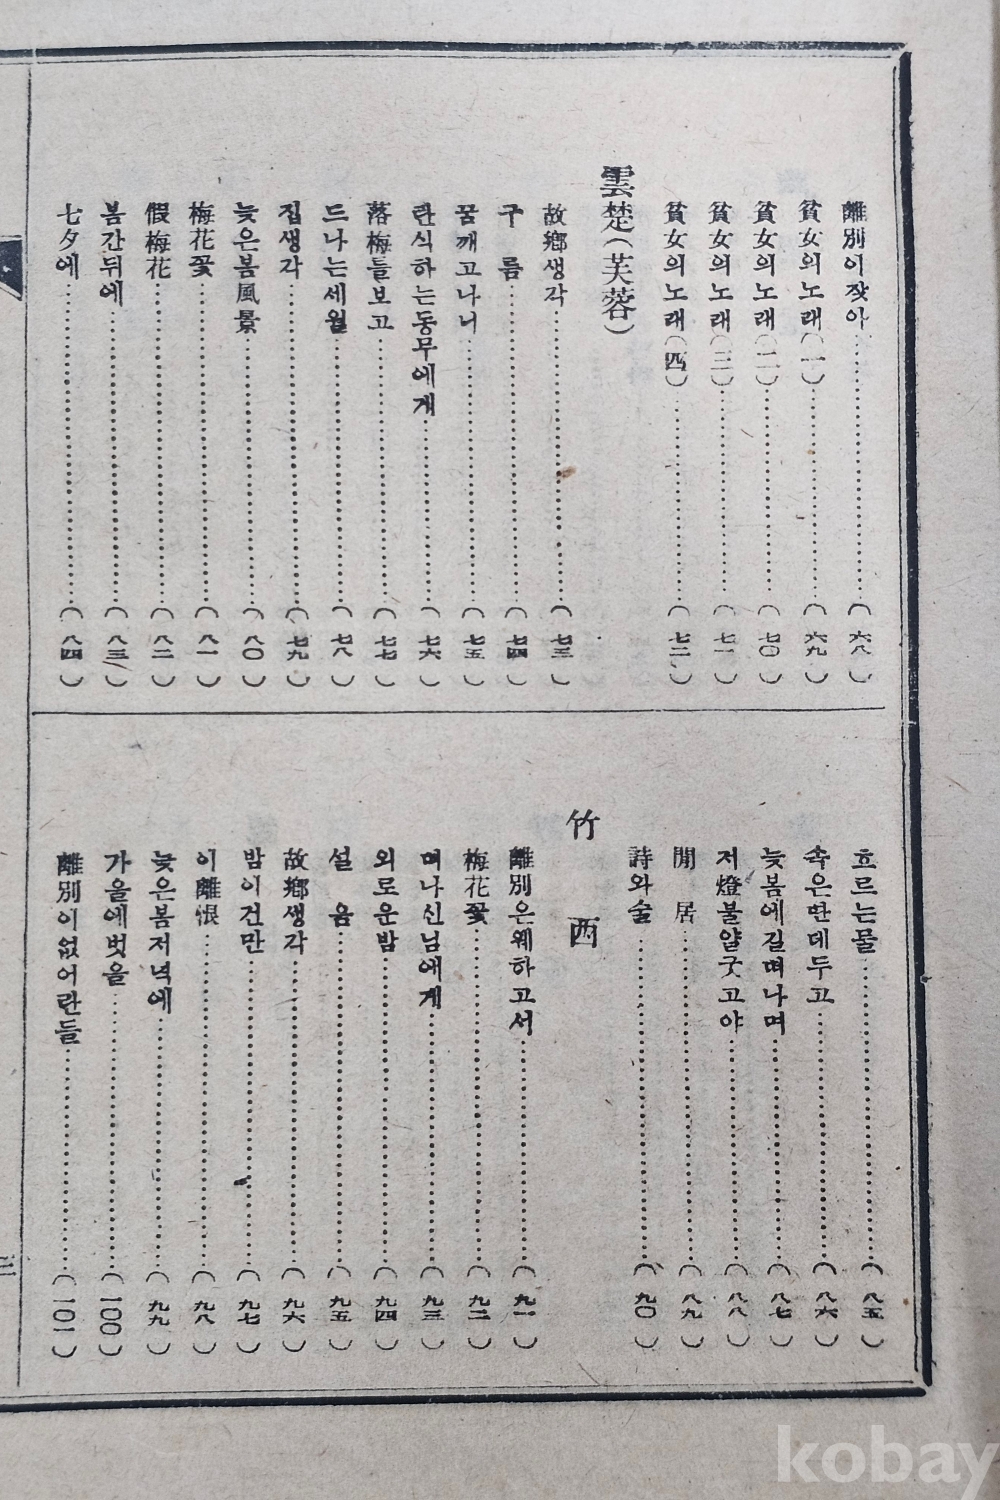 離別이잦아…(六八)
貧女의노래(一)…(六九)
貧女의노래(二)…(七〇)
貧女의노래(三)…(七一)
貧女의노래(四)…(七二)
雲楚(芙蓉)
故鄕생각…(七三)
구름…(七四)
꿈깨고나니…(七五)
란식하는동무에게…(七六)
落梅들보고…(七七)
드나는세월…(七八)
집생각…(七九)
늦은봄風景…(八〇)
梅花꽃…(八一)
假梅花…(八二)
봄간뒤에…(八三)
七夕에…(八四)
흐르는물…(八五)
속은딴데두고…(八六)
늦봄에길떠나며…(八七)
저燈불얄궂고야…(八八)
閒居…(八九)
詩와술…(九〇)
竹西
離別은웨하고서…(九一)
梅花꽃…(九二)
떠나신님에게…(九三)
외로운밤…(九四)
설음…(九五)
故鄕생각…(九六)
밤이건만…(九七)
이離恨…(九八)
늦은봄저녁에…(九九)
가을에벗을…(一〇〇)
離別이없어란들…(一〇一)
三
kobay